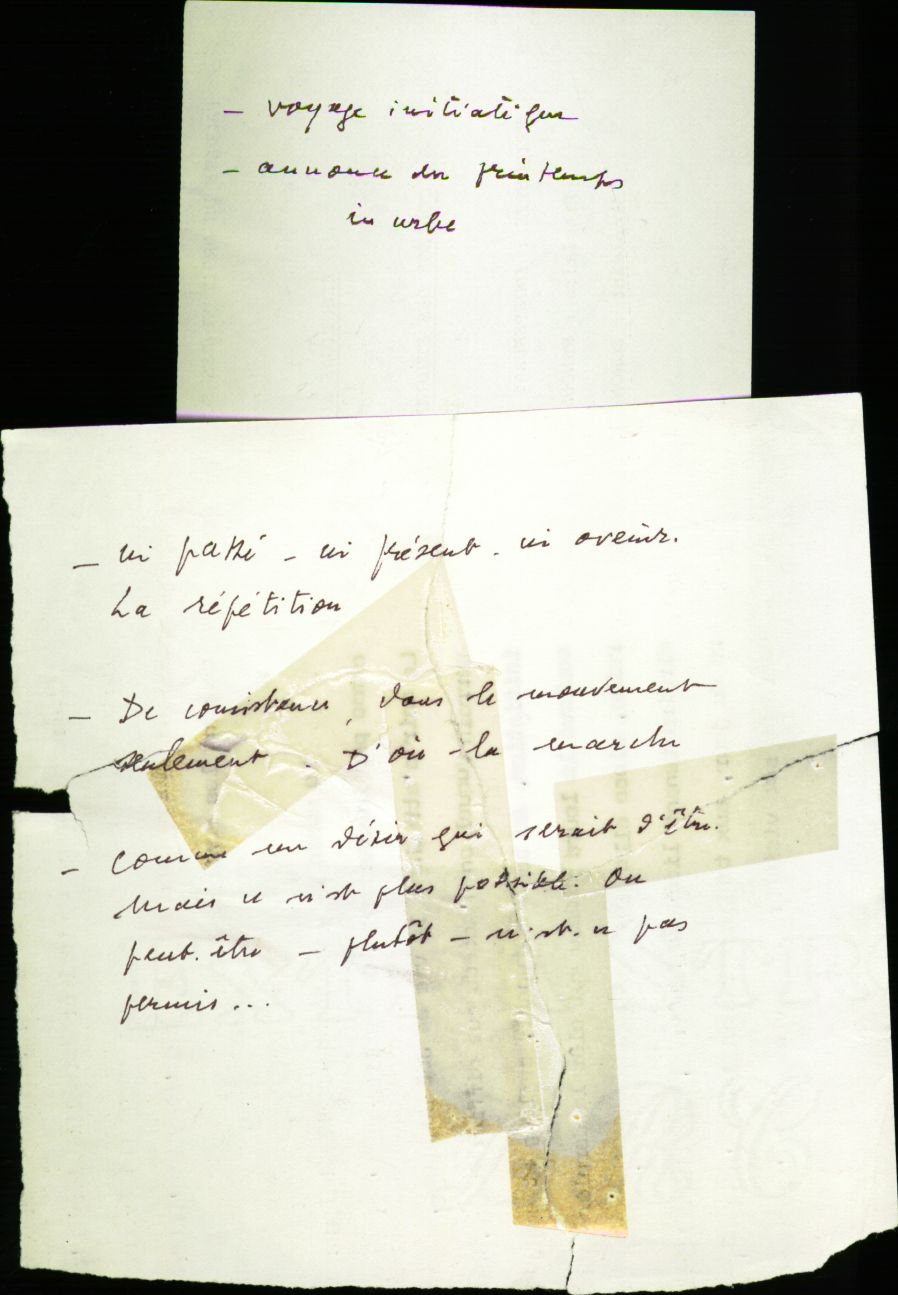 - voyage initiatique
- annonce du printemps
in urbe
- ni passé - ni présent - ni avenir.
La répétition
- De consistance, dans le mouvement
seulement. D'où la marche
- comme un désir qui serait d'être.
Mais ce n'est plus possible. Ou
peut-être - plutôt - n'est-ce pas
permis...